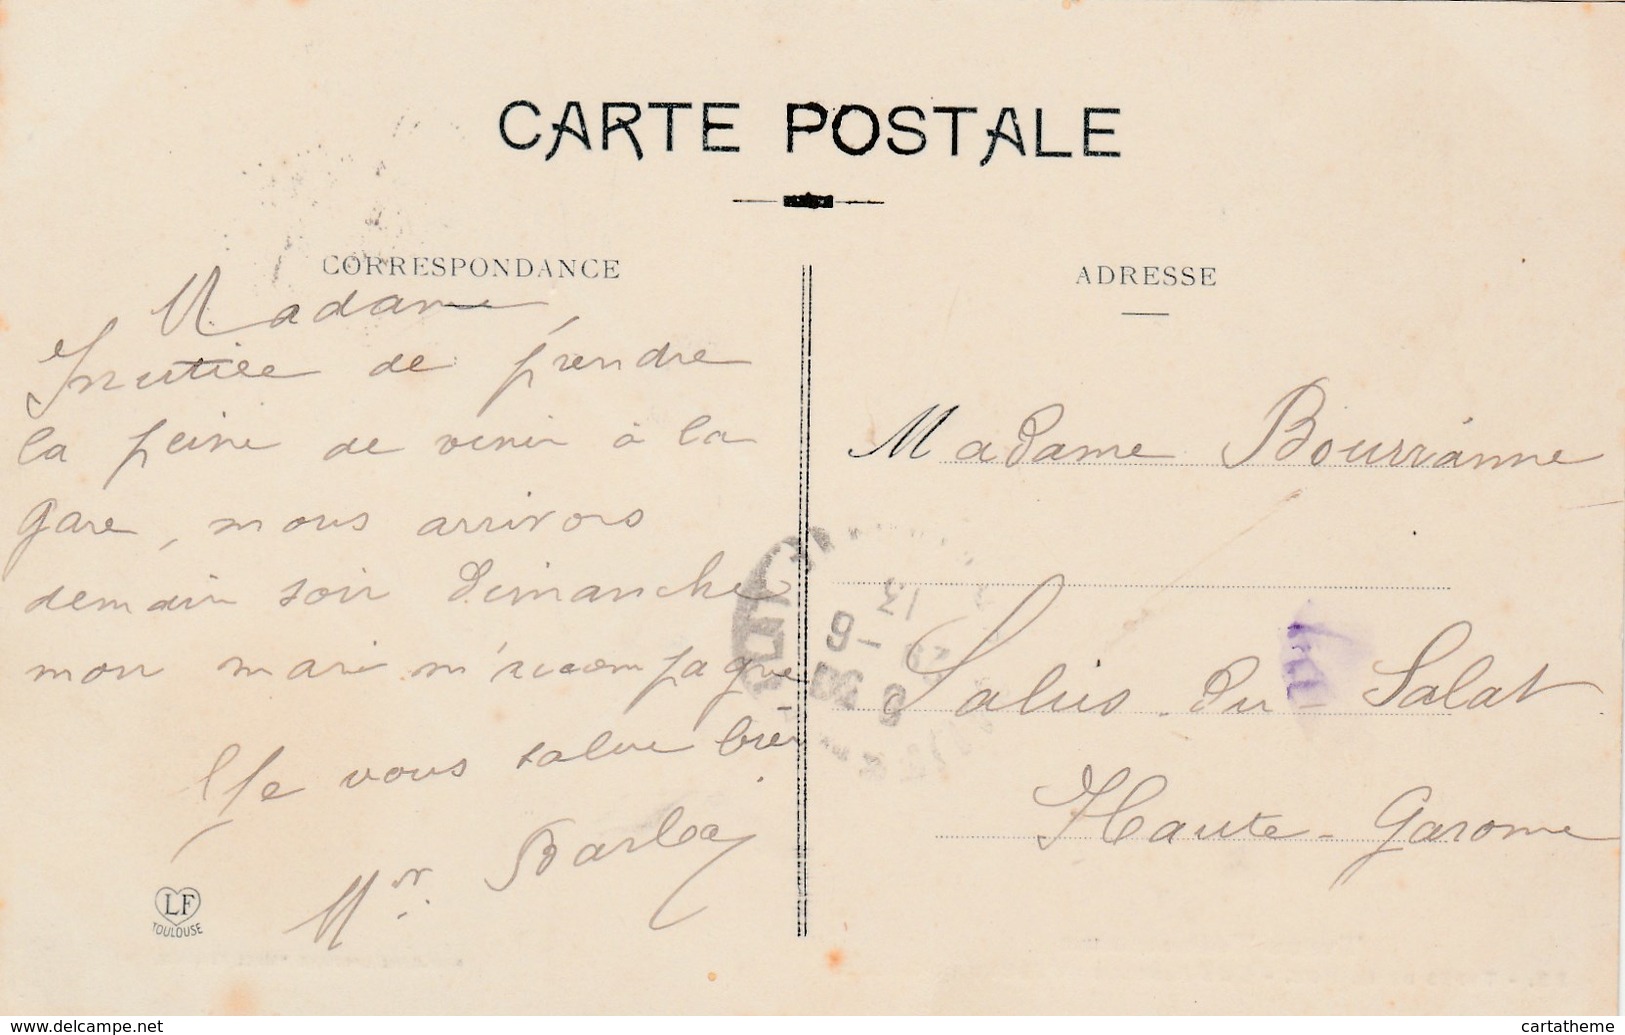 CARTE POSTALE
CORRESPONDANCE
Madame,
Inutile de prendre
la peine de venir à la
gare, nous arrivons
demain soir Dimanche
mon mari m'accompagne
Je vous salue bien
Mr
LF
TOULOUSE
ADRESSE
Madame Bourrianne
Salies-du-Salat
Haute-Garonne
13
6 -
www.delcampe.net
cartatheme